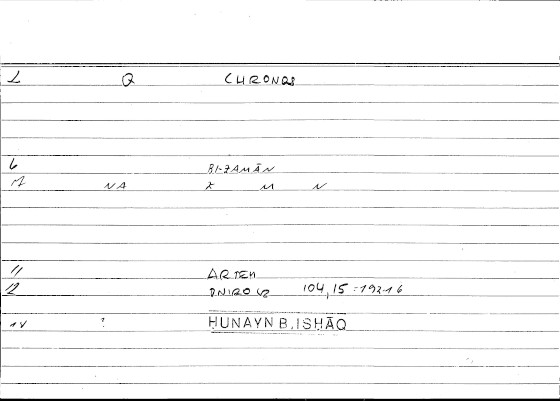 1 Q CHRONOS
6 BI-ZAMĀN
NA X M N
11 ARTEM
12 ONIROCR 104,15 = 192-16
14 ? ḤUNAYN B. ISḤĀQ